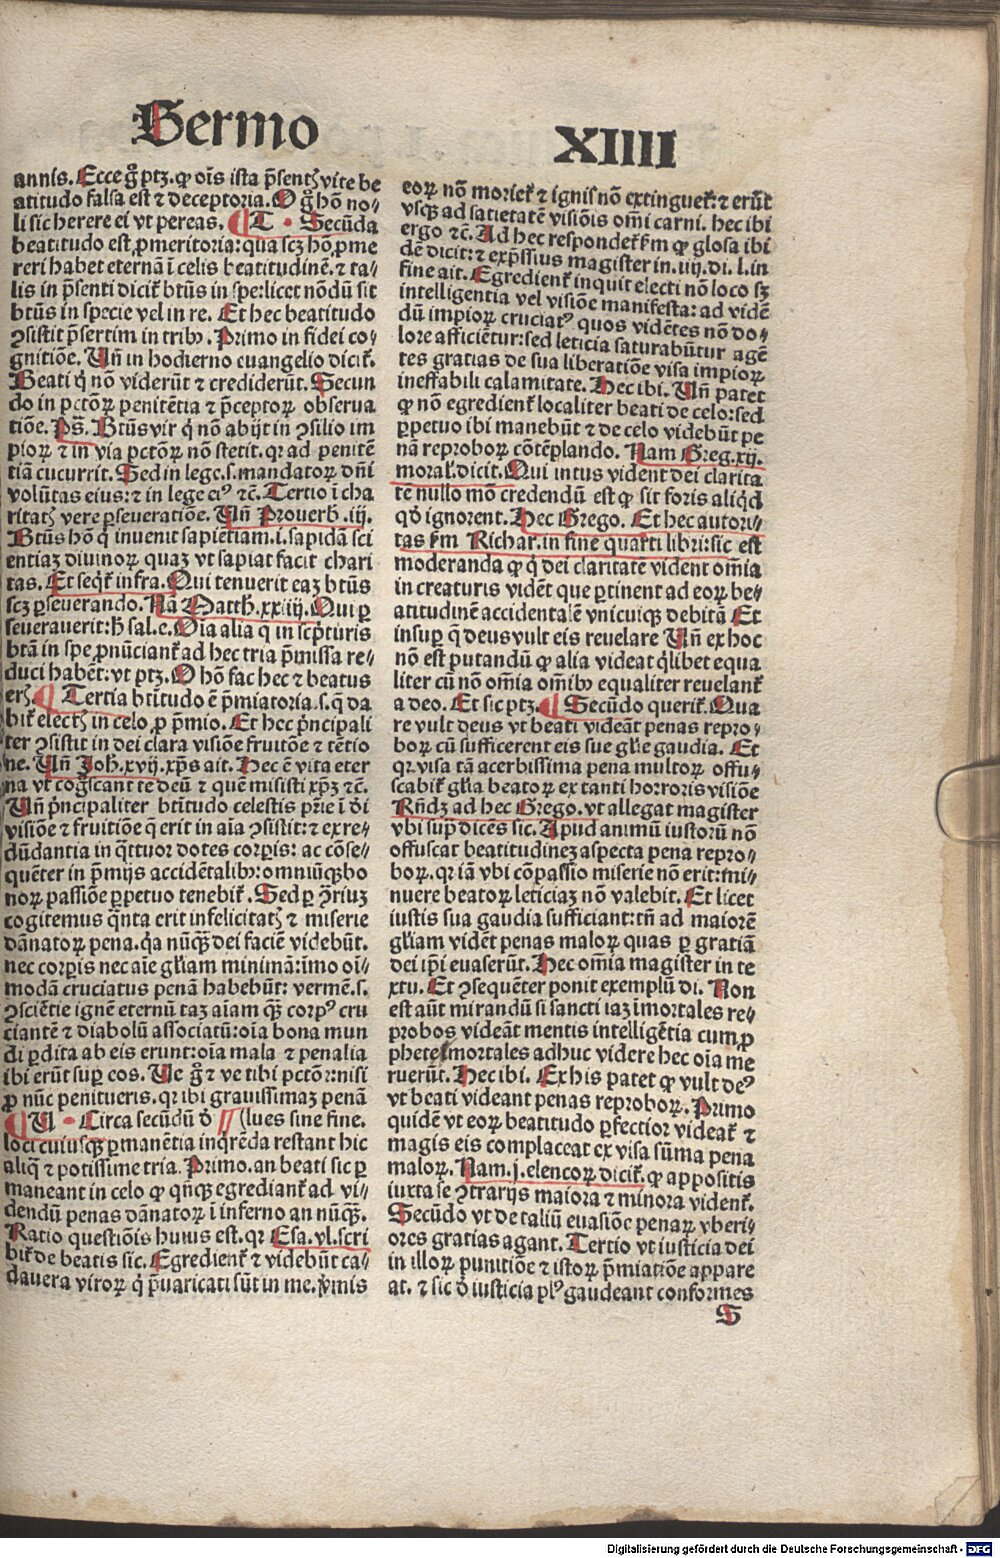 Sermo
XIIII
annis. Ecce gͦ ptꝫ. ꝙ oīs ista p̄sentꝭ vite be
atitudo falsa est ⁊ deceptoria. O gͦ hō no⸗
li sic herere ei vt pereas. ¶ T · Secūda
beatitudo est ꝓmeritoria: qua scꝫ hō ꝓme
reri habet eternā ī celis beatitudinē. ⁊ ta⸗
lis in p̄senti dicit᷑ btūs in spe: licet nōdū sit
btūs in specie vel in re. Et hec beatitudo
ꝯsistit p̄sertim in tribꝰ. Primo in fidei co⸗
gnitiōe. Uñ in hodierno euangelio dicit᷑.
Beati q̇ nō viderūt ⁊ crediderūt. Secun
do in pctōꝝ penitētia ⁊ p̄ceptoꝝ obserua
tiōe. Ps̄. Btūs vir q̇ nō abijt in ꝯsilio im
pioꝝ ⁊ in via pctōꝝ nō stetit. qꝛ ad penitē
tiā cucurrit. Sed in lege .s. mandatoꝝ dn̄i
volūtas eius: ⁊ in lege eiꝰ ⁊c̄. Tertio ī cha
ritatꝭ vere ꝑseueratiōe. Uñ Prouerb̄ .iij.
Btūs hō q̇ inuenit sapietiam .i. sapidā sci
entiaꝫ diuinoꝝ quaꝫ vt sapiat facit chari
tas. Et seqt᷑ infra. Qui tenuerit eaꝫ btūs
scꝫ ꝑseuerando. Nā Matth̄. xxiiij. Qui ꝑ
seuerauerit: h̄ sal. e. Oīa alia q̄ in scpturis
btā in spe ꝓnūciant᷑ ad hec tria p̄missa re⸗
duci habēt: vt ptꝫ. O hō fac hec ⁊ beatus
erꝭ. ¶ Tertia btītudo ē p̄miatoria .s. q̄ da
bit᷑ electꝭ in celo ꝓ p̄mio. Et hec p̄ncipali
ter ꝯsistit in dei clara visiōe fruitōe ⁊ tētio
ne. Uñ Joh̄. xvij. xp̄s ait. Hec ē vita eter
na vt cog̃scant te deū ⁊ quē misisti xp̄ꝫ ⁊c̄.
Uñ p̄ncipaliter btītudo celestis pr̄ie ī dei
visiōe ⁊ fruitiōe q̄ erit in aīa ꝯsistit: ⁊ ex re⸗
dūdantia in q̄ttuor dotes corꝑis: ac cōse⸗
quēter in p̄mijs accidētalibꝰ: omniūqꝫ bo
noꝝ passiōe ꝑpetuo tenebit᷑. Sed ꝑ ꝯ̄riuꝫ
cogitemus q̄nta erit infelicitatꝭ ⁊ miserie
dānatoꝝ pena. q̇a nūqꝫ dei faciē videbūt.
nec corꝑis nec aīe gl̄iam minimā: īmo oī⸗
modā cruciatus penā habebūt: vermē .s.
ꝯsciētie ignē eternū taꝫ aīam qꝫ corpꝰ cru
ciantē ⁊ diabolū associatū: oīa bona mun
di ꝑdita ab eis erunt: oīa mala ⁊ penalia
ibi erūt suꝑ eos. Ue gͦ ⁊ ve tibi pctōr: nisi
ꝓ nūc penitueris. qꝛ ibi grauissimaꝫ penā
¶ U · Circa secūdū ḋ // (lues sine fine.
loci cuiusqꝫ ꝑmanētia inq̇rēda restant hic
aliq̄ ⁊ potissime tria. Primo. an beati sic ꝑ
maneant in celo ꝙ qn̄qꝫ egrediant᷑ ad vi⸗
dendū penas dānatoꝝ ī inferno an nūqꝫ.
Ratio questiōis huius est. qꝛ Esa. vl. scri
bit᷑ de beatis sic. Egredient᷑ ⁊ videbūt ca⸗
dauera viroꝝ q̇ p̄uaricati sūt in me. v̇mis
eoꝝ nō moriet᷑ ⁊ ignis nō extinguet᷑: ⁊ erūt
vsqꝫ ad satietatē visiōis om̄i carni. hec ibi
ergo ⁊c̄. Ad hec respondet᷑ fm ꝙ glosa ibi
dē dicit: ⁊ exp̄ssius magister in. iiij. di. l. in
fine ait. Egredient᷑ inquit electi nō loco sꝫ
intelligentia vel visiōe manifesta: ad vidē
dū impioꝝ cruciatꝰ quos vidētes nō do⸗
lore afficiētur: sed leticia saturabūtur agē
tes gratias de sua liberatiōe visa impioꝝ
ineffabili calamitate. Hec ibi. Uñ patet
ꝙ nō egredient᷑ localiter beati de celo: sed
ꝑpetuo ibi manebūt ⁊ de celo videbūt pe
nā reproboꝝ cōtēplando. Nam Greg. xij.
moral̄. dicit. Qui intus vident dei clarita
tē nullo mō credendū est ꝙ sit foris aliq̇d
qḋ ignorent. Hec Grego. Et hec autori⸗
tas fm Richar. in fine quarti libri: sic est
moderanda ꝙ q̇ dei claritatē vident om̄ia
in creaturis vidēt que ꝑtinent ad eoꝝ be⸗
atitudinē accidentalē vnicuiqꝫ debitā Et
insuꝑ q̄ deus vult eis reuelare Uñ ex hoc
nō est putandū ꝙ alia videat q̇libet equa
liter cū nō om̄ia om̄ibꝰ equaliter reuelant᷑
a deo. Et sic ptꝫ. ¶ Secūdo querit᷑. Qua
re vult deus vt beati videāt penas repro⸗
boꝝ cū sufficerent eis sue gl̄ie gaudia. Et
qꝛ visa tā acerbissima pena multoꝝ offu⸗
scabit᷑ gl̄ia beatoꝝ ex tanti horroris visiōe
Rn̄dꝫ ad hec Grego. vt allegat magister
vbi supͣ dicēs sic. Apud animū iustorū nō
offuscat beatitudineꝫ aspecta pena repro⸗
boꝝ. qꝛ iā vbi cōpassio miserie nō erit: mi⸗
nuere beatoꝝ leticiaꝫ nō valebit. Et licet
iustis sua gaudia sufficiant: tñ ad maiorē
gl̄iam vidēt penas maloꝝ quas ꝑ gratiā
dei ip̄i euaserūt. Hec om̄ia magister in te
xtu. Et ꝯsequēter ponit exemplū di. Non
est aūt mirandū si sancti iaꝫ īmortales re⸗
probos videāt mentis intelligētia cum ꝓ
phete mortales adhuc videre hec oīa me
ruerūt. Hec ibi. Ex his patet ꝙ vult deꝰ
vt beati videant penas reproboꝝ. Primo
quidē vt eoꝝ beatitudo ꝑfectior videat᷑ ⁊
magis eis complaceat ex visa sūma pena
maloꝝ. Nam. j. elencoꝝ dicit᷑. ꝙ appositis
iuxta se ꝯtrarijs maiora ⁊ minora vident᷑.
Secūdo vt de taliū euasiōe penaꝝ vberi⸗
ores gratias agant. Tertio vt iusticia dei
in illoꝝ punitiōe ⁊ istoꝝ p̄miatiōe appare
at. ⁊ sic ḋ iusticia plꝰ gaudeant conformes
S
Digitalisierung gefördert durch die Deutsche Forschungsgemeinschaft - DFG